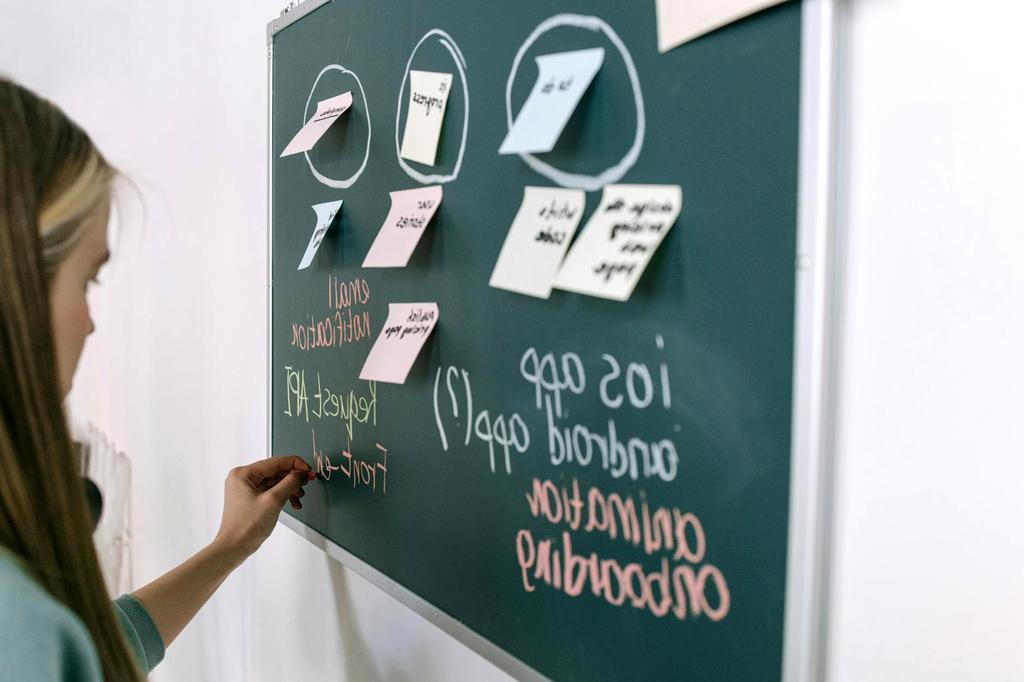 to do
write
code
pricing
page
ios app
android app(?)
animation
onboarding
in
progress
user
stories
publish
pricing page
email
notification
Request API
Front-end